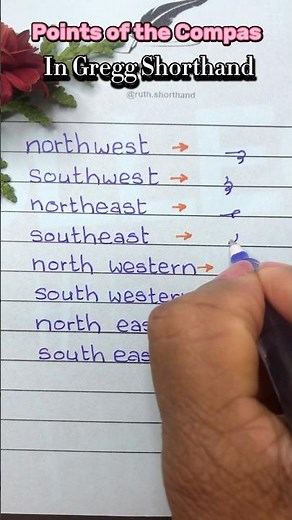 Points of the Compas
In Gregg Shorthand
@ruth.shorthand
northwest →
southwest →
northeast →
southeast →
north western →
south
north
south